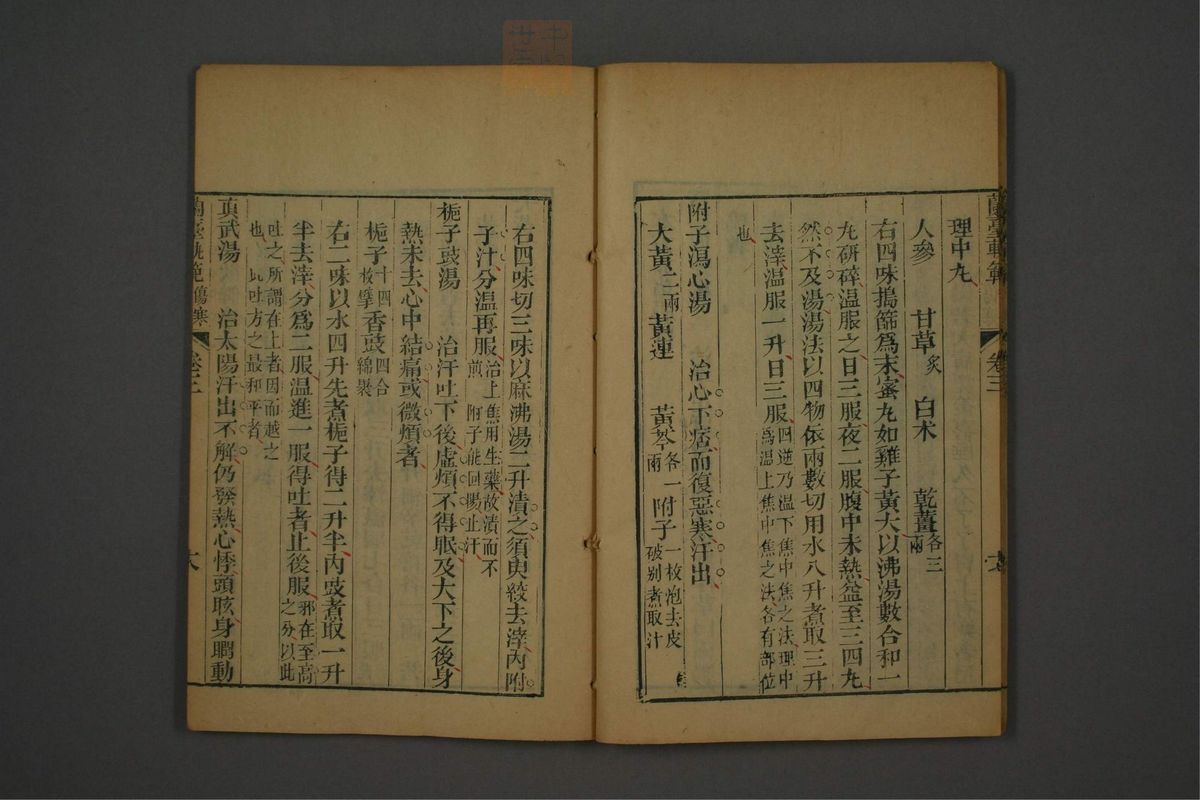 蘭臺軌範
卷三
理中丸
人參　甘草炙　白术　乾薑各三兩
右四味搗篩爲末蜜丸如雞子黃大以沸湯數合和一
丸研碎温服之日三服夜二服腹中未熱益至三四丸
然不及湯湯法以四物依兩數切用水八升煮取三升
去滓温服一升日三服四逆乃温下焦之法理中爲温上焦中焦之法各有部位
也
附子瀉心湯　治心下痞而復惡寒汗出
大黃二兩黃連　黃芩各一兩附子一枚炮去皮破别煮取汁
右四味切三味以麻沸湯二升漬之須臾絞去滓內附
子汁分温再服治上焦用生藥故漬而不煎附子能回陽止汗
梔子豉湯　治汗吐下後虛煩不得眠及大下之後身
熱未去心中結痛或微煩者
梔子十四枚擘香豉四合綿裹
右二味以水四升先煮梔子得二升半內豉煮取一升
半去滓分爲二服温進一服得吐者止後服邪在至高之分以此
吐之所謂在上者因而越之也此吐方之最和平者
真武湯　治太陽汗出不解仍發熱心悸頭眩身瞤動
蘭臺軌範傷寒
卷三